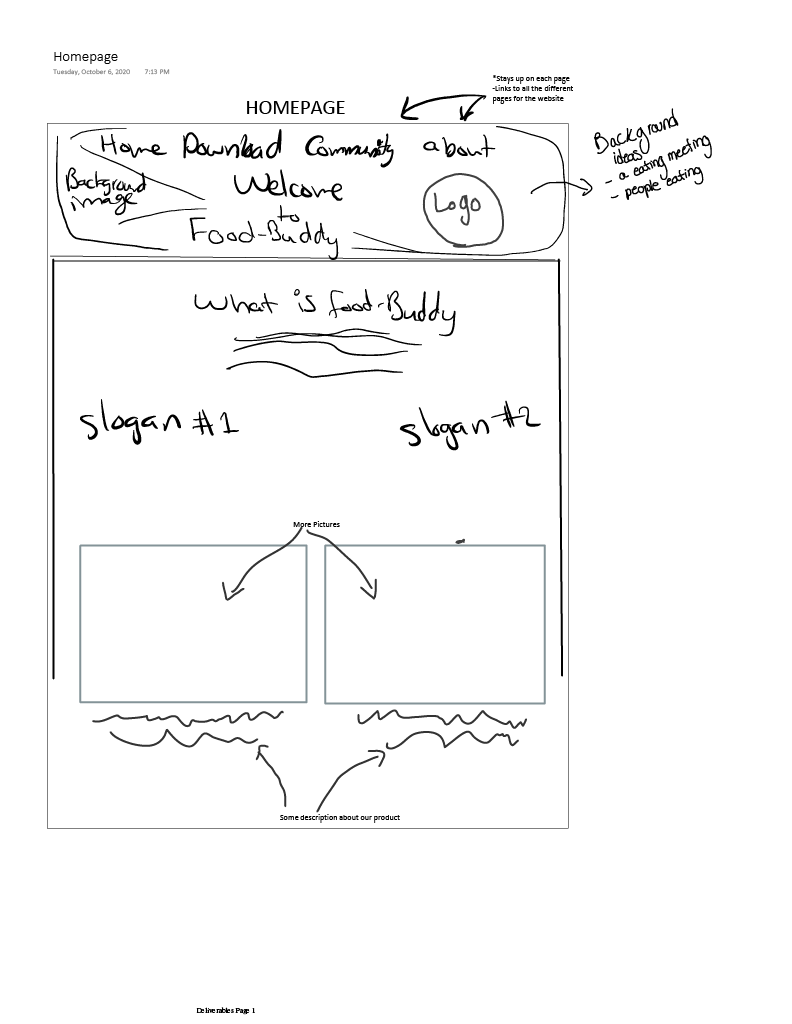 Homepage
Tuesday, October 6, 2020 7:13 PM
*Stays up on each page
-Links to all the different
pages for the website
HOMEPAGE
Home Download Community about
Background
image
Welcome
to
Food-Buddy
Logo
Background
ideas
- a eating meeting
- people eating
What is food-Buddy
slogan #1
slogan #2
More Pictures
Some description about our product
Deliverables Page 1